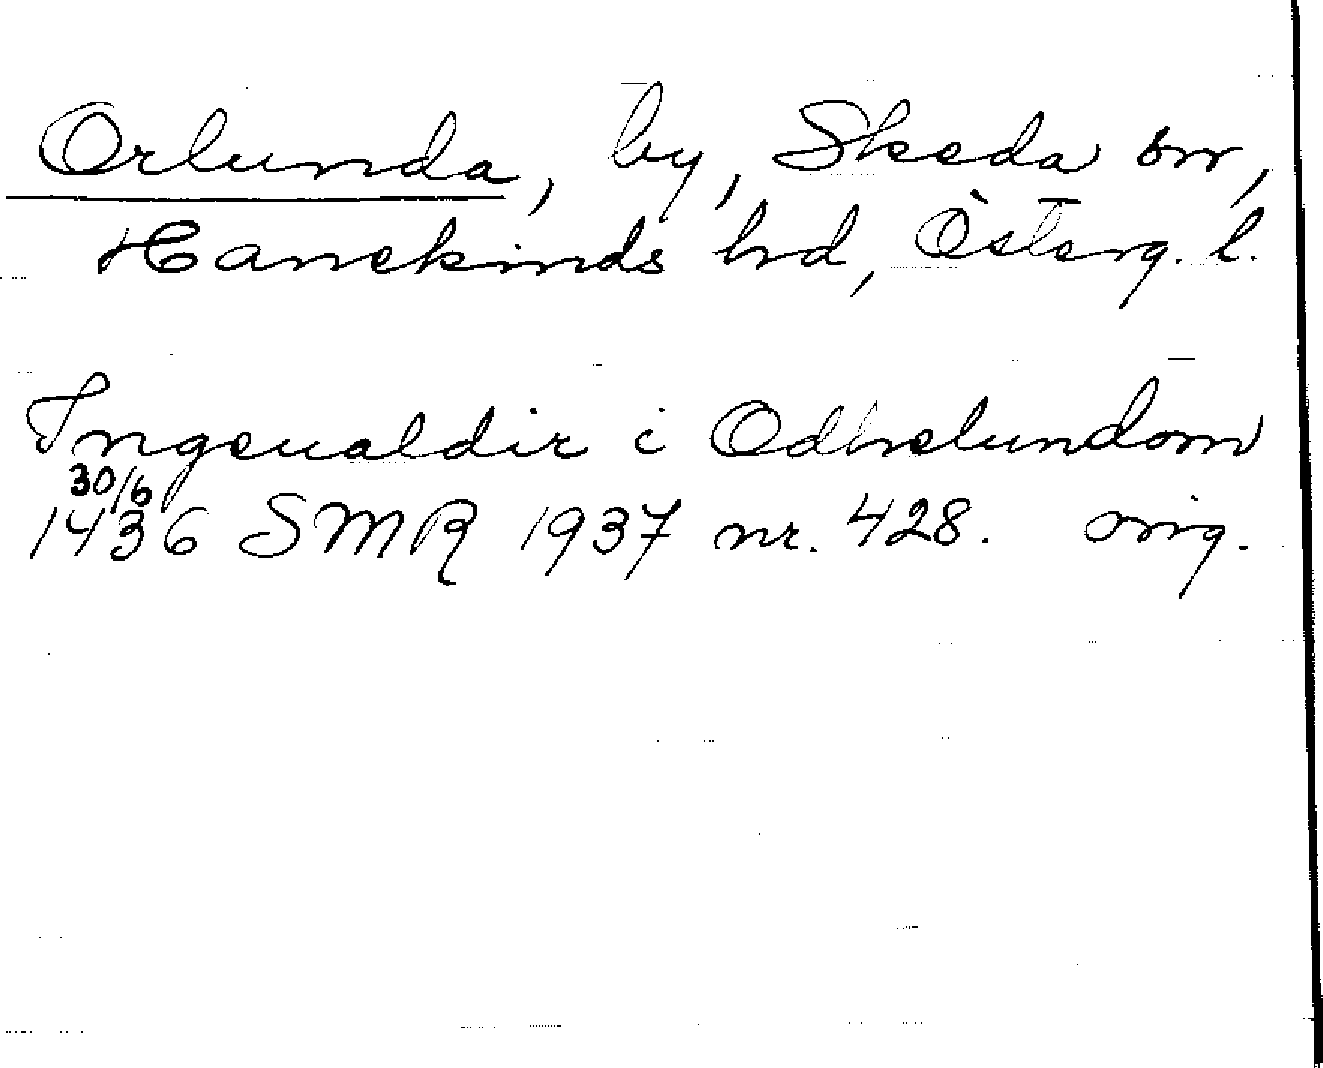 Orlunda, by, Skeda sn,
Hanekinds hd, Österg. l.
Ingeualdir i Odhelundom
30/6
1436 SMR 1937 nr. 428. orig.